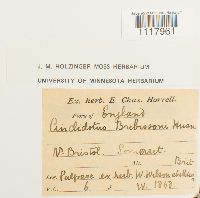 1117961
J. M. HOLZINGER MOSS HERBARIUM
UNIVERSITY OF MINNESOTA HERBARIUM
Ex. herb. E Chas. Horrell.
Flora of England
Cinclidotus Brebissoni Husn
Nr Bristol. Somerset.
Alt. Brit
Leg. Palgrave ex herb. W. Wilson
v.c. 6. 1862